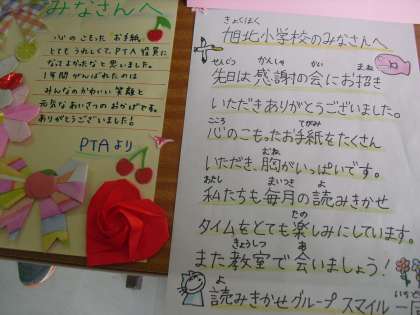 みなさんへ
心のこもった お手紙
とてもうれしくて、PTA役員に
なってよかったなと思いました。
1年間がんばれたのは
みんなのかわいい笑顔と
元気なあいさつのおかげです。
ありがとうございました!
PTAより
きょくほく
旭北小学校のみなさんへ
せんじつ かんしゃ かい まね
先日は感謝の会にお招き
いただきありがとうございました。
こころ てがみ
心のこもったお手紙をたくさん
むね
いただき、胸がいっぱいです。
わたし まいつき よ
私たちも毎月の読みきかせ
たの
タイムをとても楽しみにしています。
きょうしつ あ
また教室で会いましょう!
よ いちどう
読みきかせグループ スマイル 一同